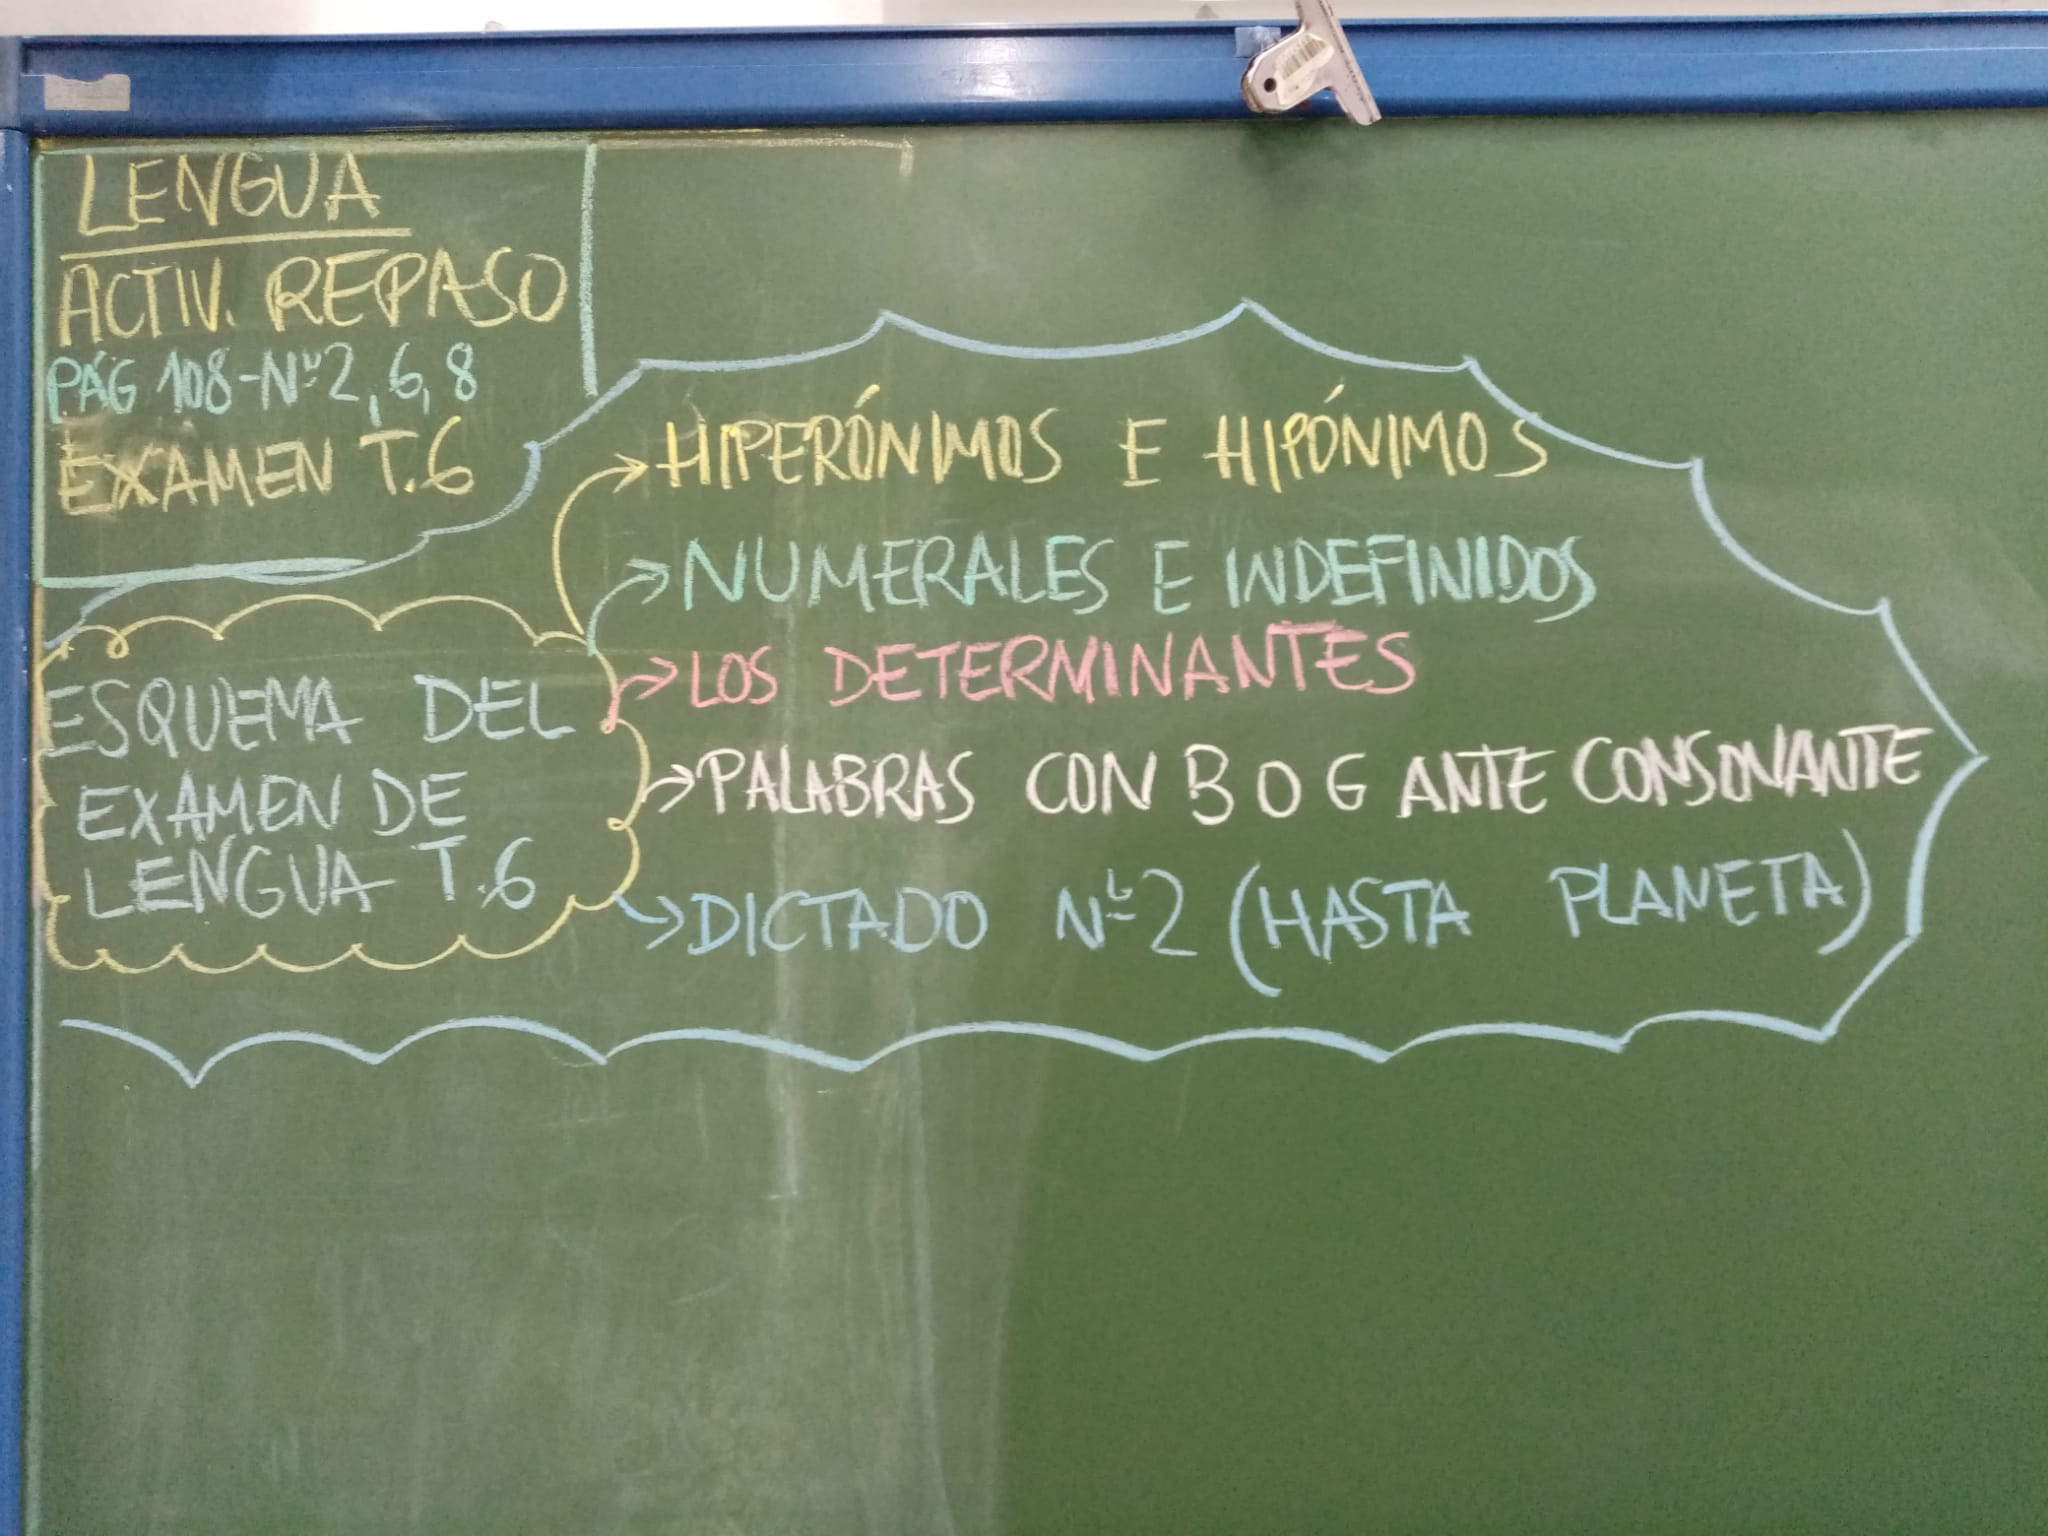 LENGUA
ACTIV. REPASO
PÁG 108-Nº 2, 6, 8
EXAMEN T.6
ESQUEMA DEL
EXAMEN DE
LENGUA T.6
→ HIPERÓNIMOS E HIPÓNIMOS
→ NUMERALES E INDEFINIDOS
→ LOS DETERMINANTES
→ PALABRAS CON B O G ANTE CONSONANTE
→ DICTADO Nº 2 (HASTA PLANETA)